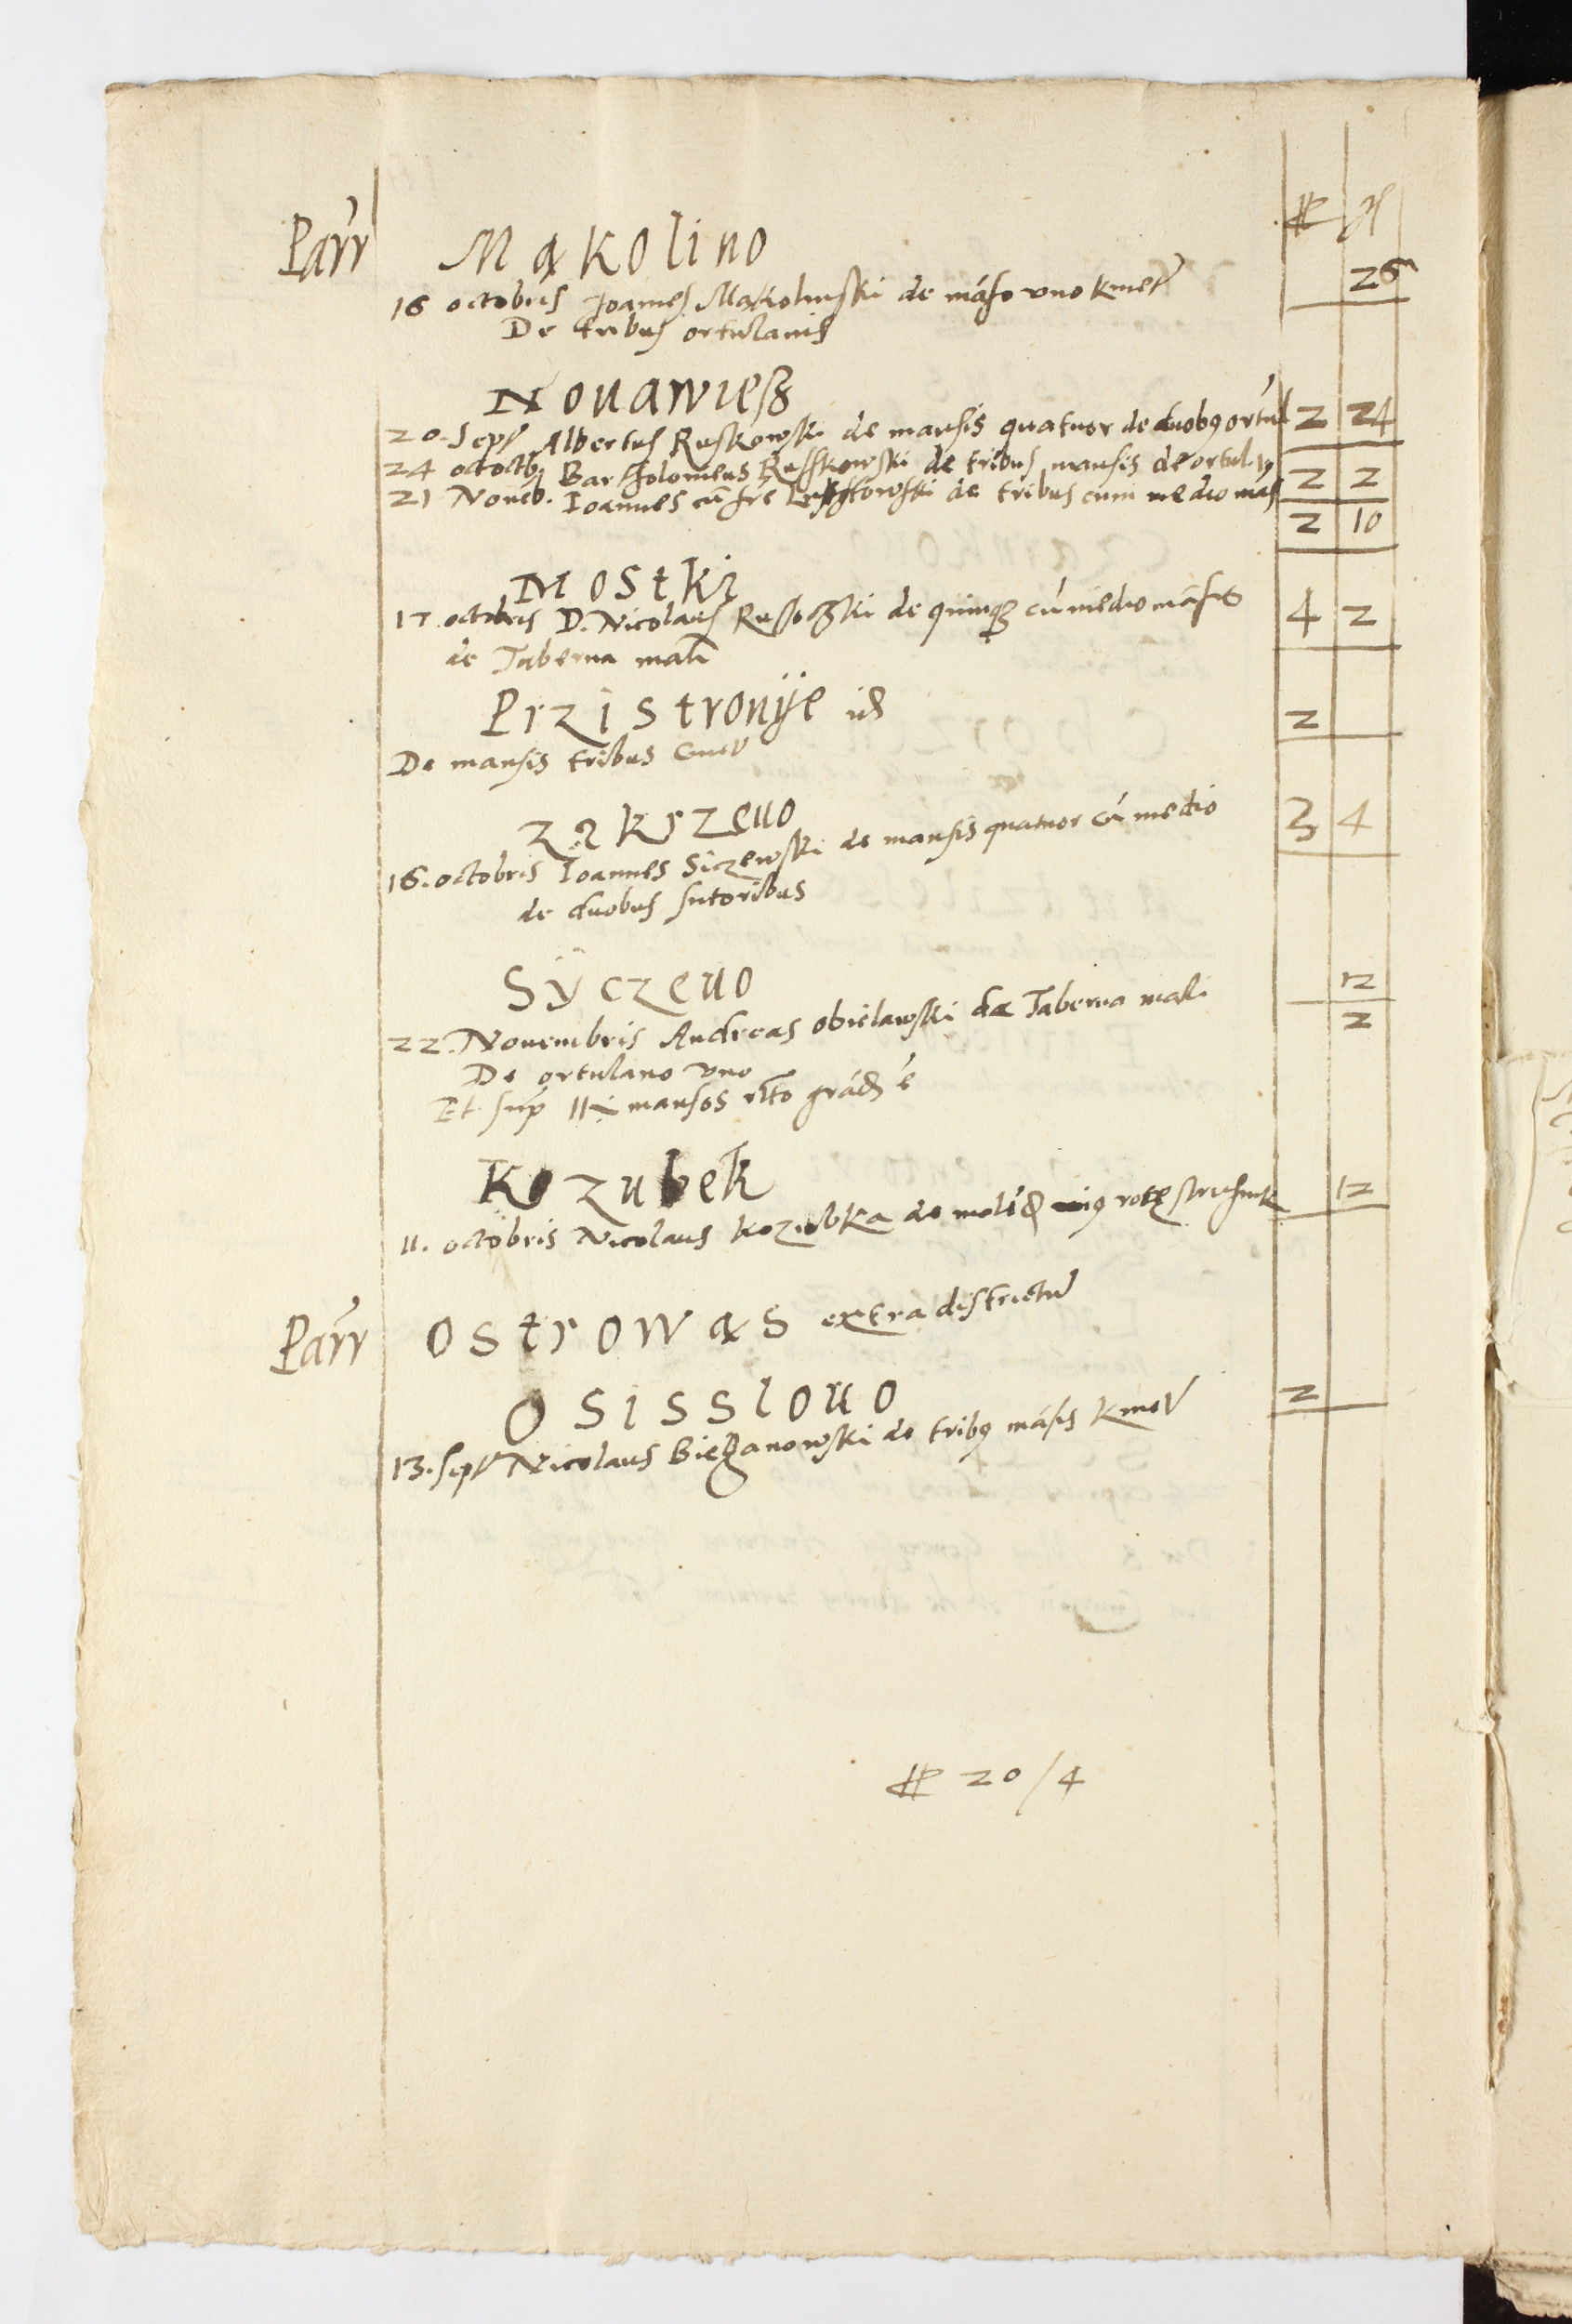 Parr Mąkolino
16 octobris Joannes Makolinski de máso vno kmet
De tribus ortulanis
26
Nouawiesz
20. Sept Albertus Ruskowski de mansis quatuor de duobq ortul 2 24
24 octotb. Bartholomeus Russkowski de tribus mansis de ortul. 2 2
21 Noueb. Ioannes cū fre de tribus cum medio mās 2 10
Mostki
17. octobris D. Nicolaus Russoczki de quinqz cū medio māsis 4 2
de Taberna mali
Przistronije id
De mansis tribus Cmet 2
Ząkrzeuo
16. octobris Ioannes Siczewski de mansis quatuor cū medio 3 4
de duobus sutoribus
Sÿczeuo
22. Nouembris Andreas obielawski de Taberna mali 12
De ortulano vno 2
Et sup mansos
Kozubek
11. octobris Nicolaus Kozubka de rotę 12
Parr Ostrowąs extra districtu
Osisslouo
13. sept Nicolaus Bieganowski de tribq māsis Kmet 2
20/4